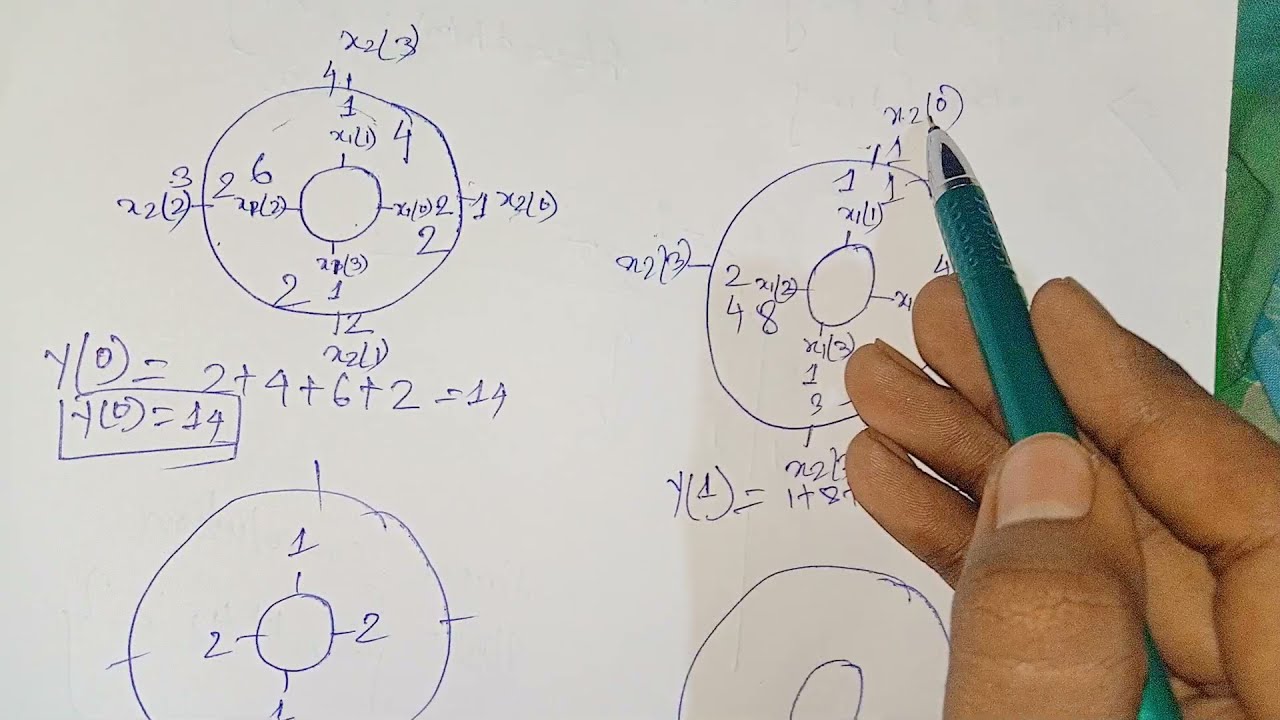 x2(3)
4
1
x1(1)
4
3
2 6
x2(2)
x1(2)
x1(0) 2
1 x2(0)
2
x1(3)
2 1
2
x2(1)
y(0) = 2+4+6+2 = 14
y(0) = 14
1
2 2
1
x2(0)
1
1 1
x1(1)
x2(3)
2 x1(2)
4
4 8
x1(3)
1
3
y(1) = 1+8+